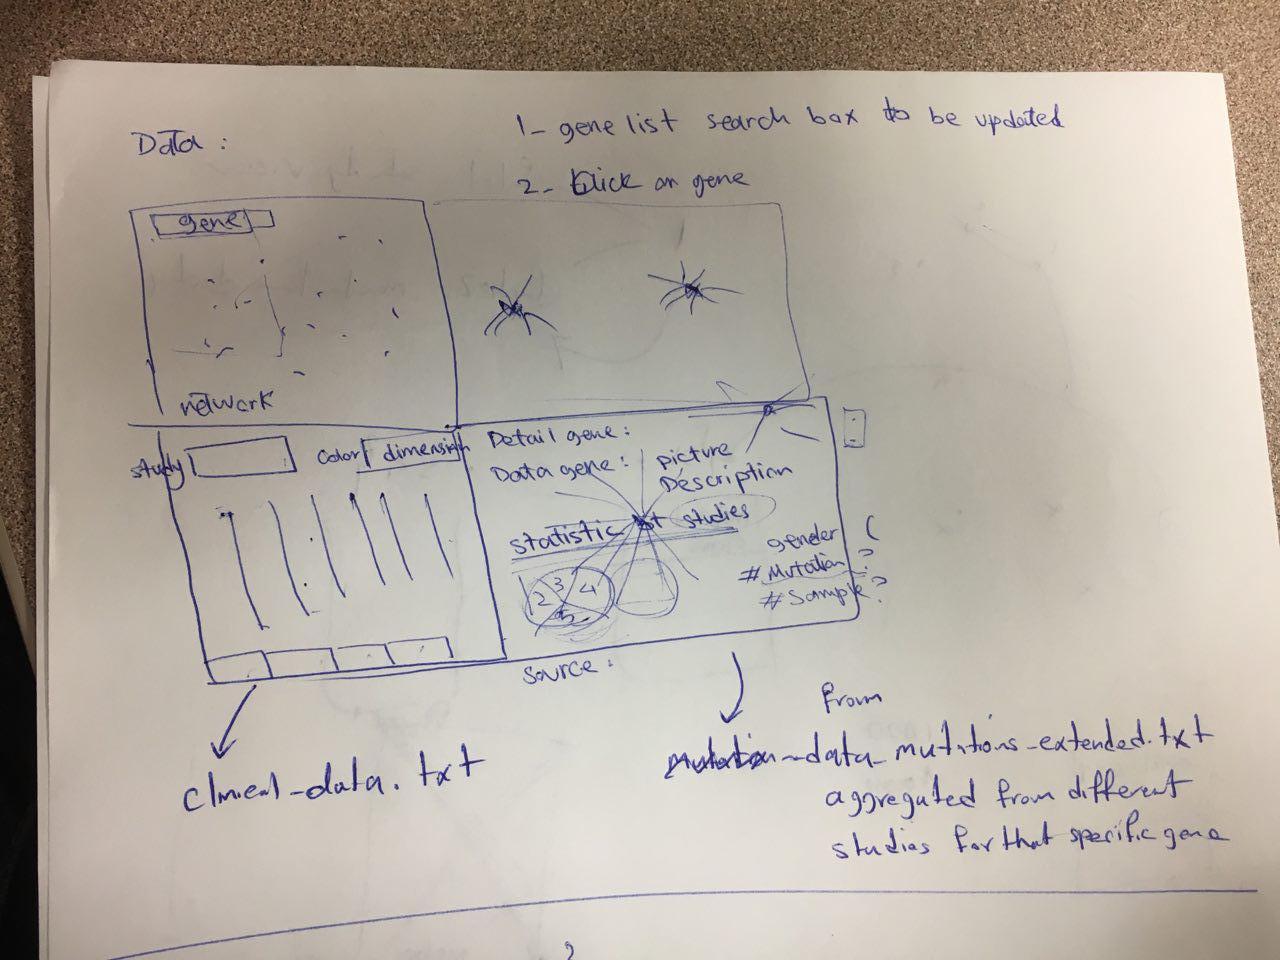 Data :
1- gene list search box to be updated
2- Click on gene
gene
network
study
Color
dimension
Detail gene :
Data gene :
picture
Description
statistic
studies
gender
# Mutation ?
# Sample ?
2 3 4
5
source :
From
clinical_data.txt
data_mutitions_extended.txt
aggregated from different
studies for that specific gene
2